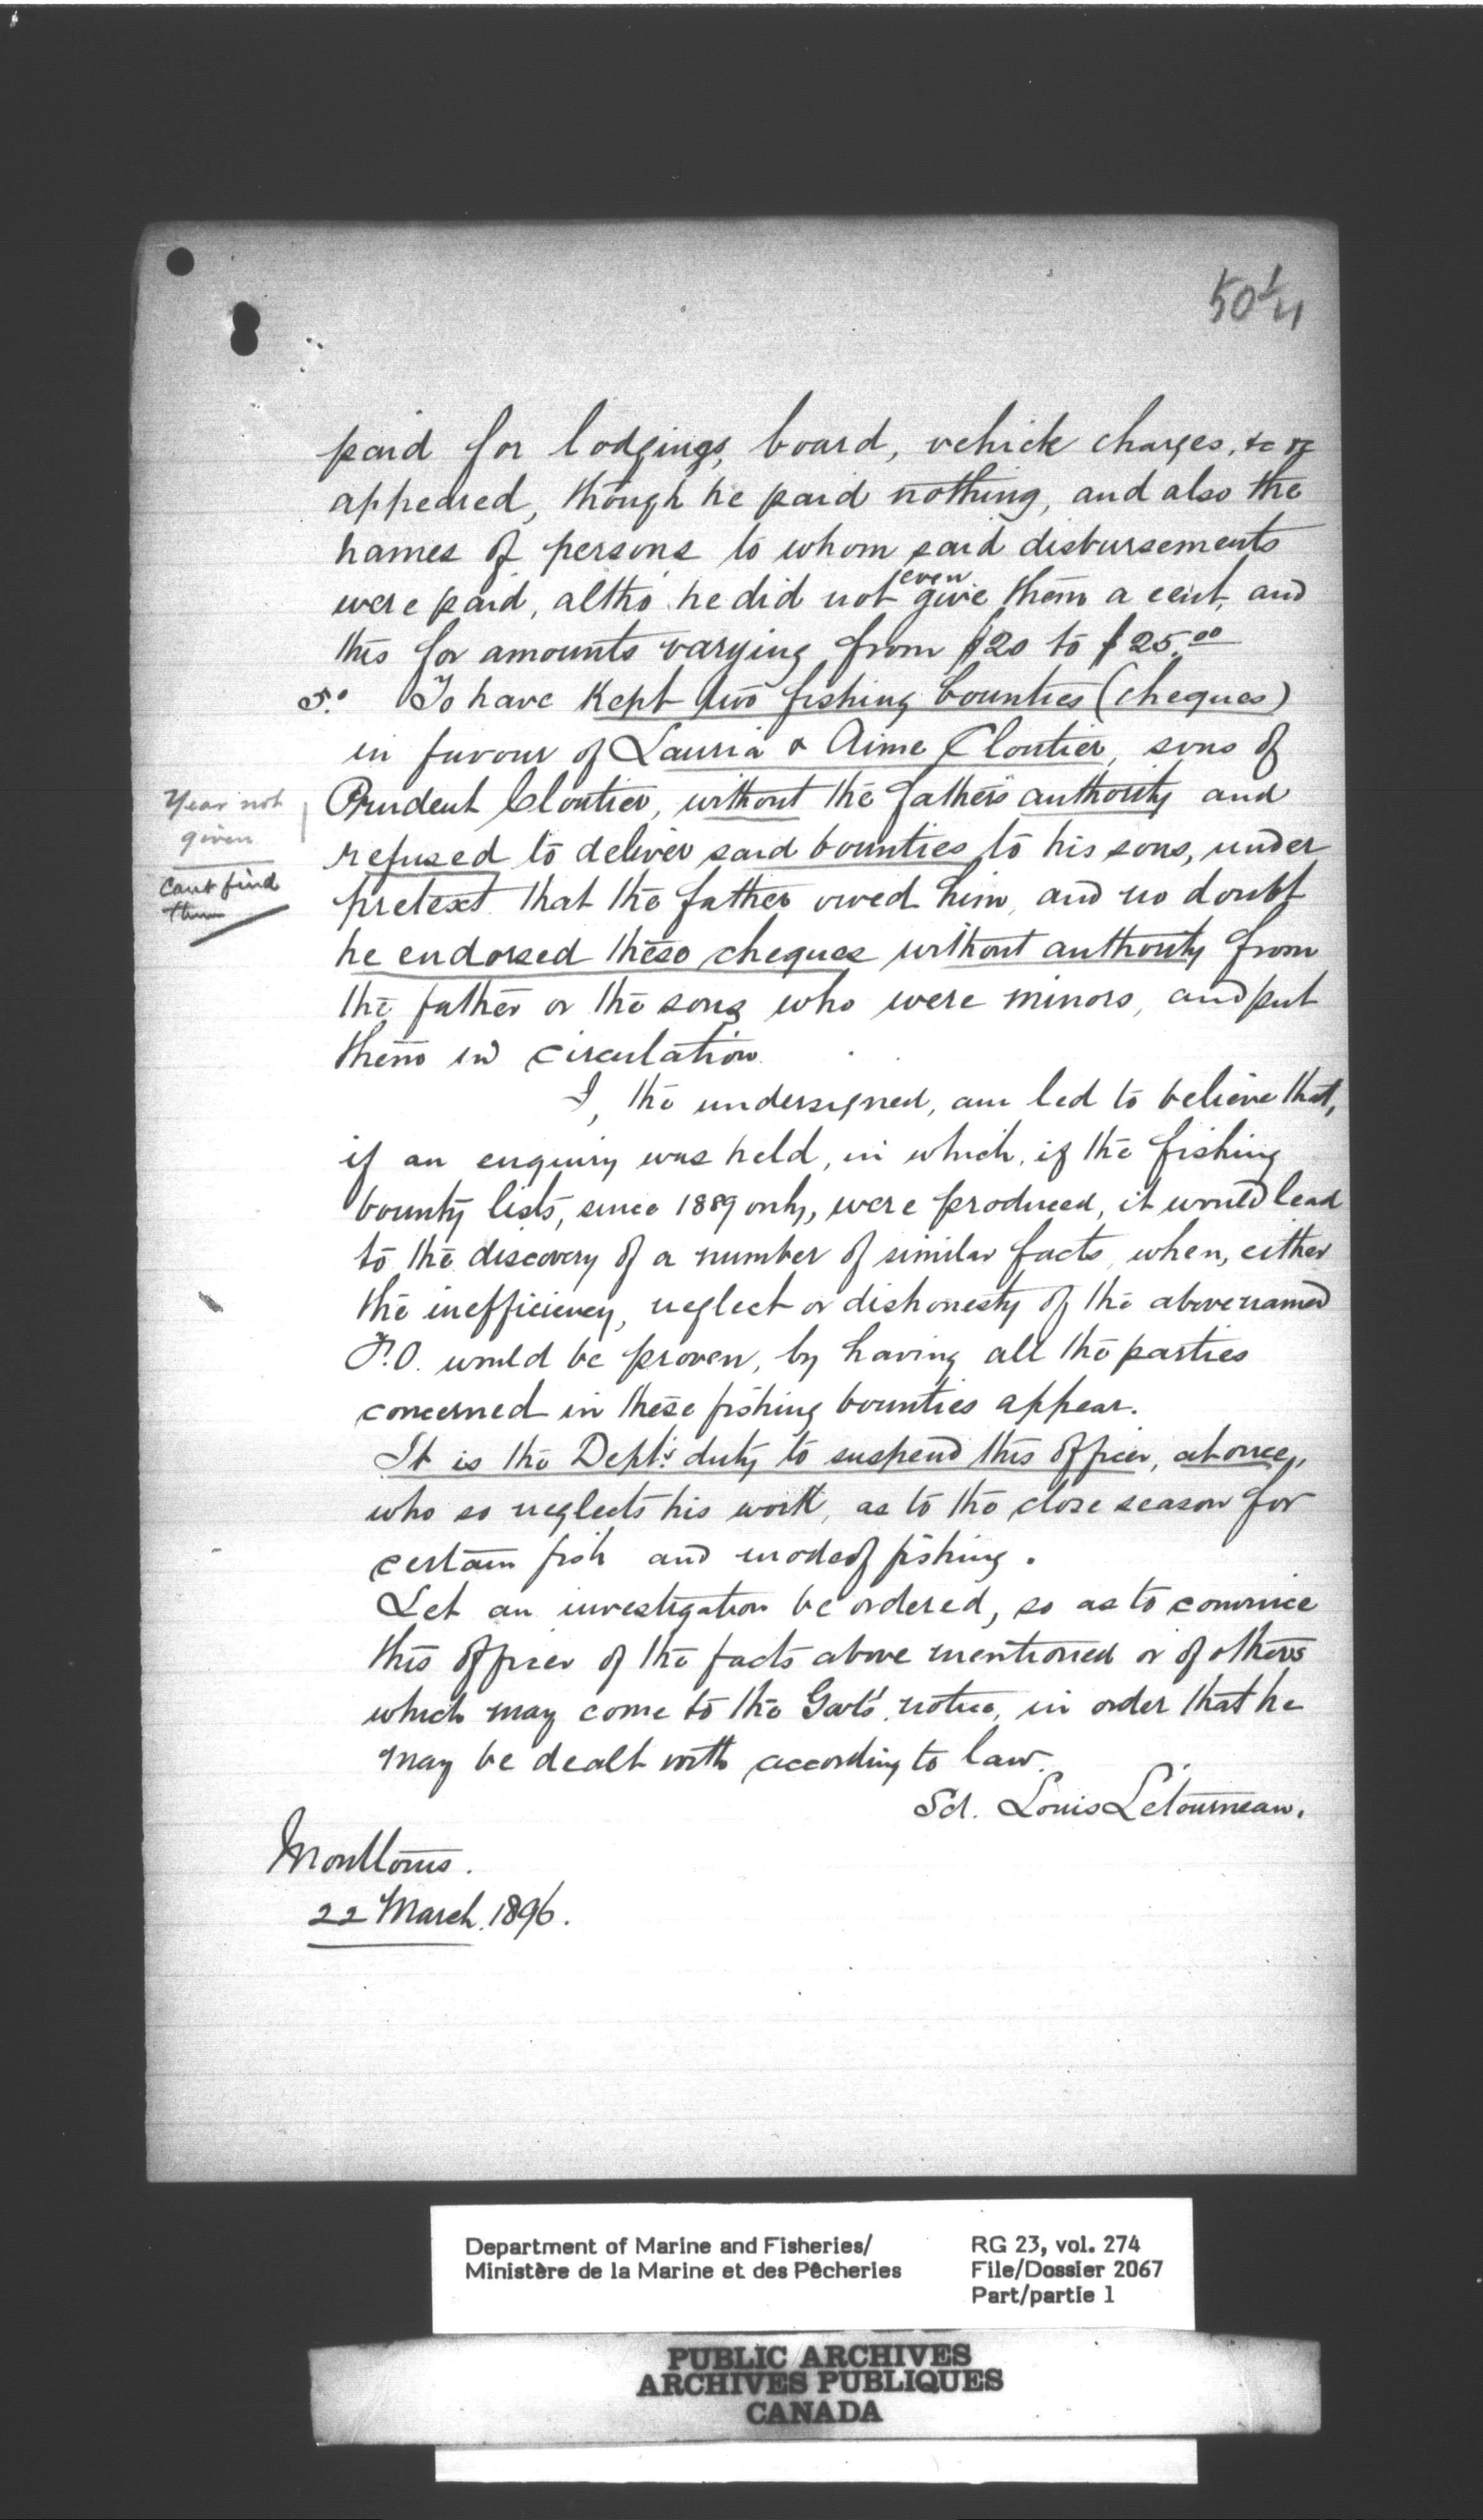 paid for lodgings, board, vehicle charges, &c &c
appeared, though he paid nothing, and also the
names of persons to whom said disbursements
were paid, altho' he did not even give them a cent, and
this for amounts varying from $20 to $25.00
5.o To have kept two fishing bounties (cheques)
in favour of Lauria & Aime Cloutier, sons of
Prudent Cloutier, without the father's authority and
refused to deliver said bounties to his sons, under
pretext that the father owed him, and no doubt
he endorsed these cheques without authority from
the father or the sons who were minors, and put
them in circulation.
Year not
given
cant find
them
I, the undersigned, am led to believe that,
if an enquiry was held, in which, if the fishing
bounty lists, since 1889 only, were produced, it would lead
to the discovery of a number of similar facts, when, either
the inefficiency, neglect or dishonesty of the above named
F.O. would be proven, by having all the parties
concerned in these fishing bounties appear.
It is the Dept's duty to suspend this officer, at once,
who so neglects his work, as to the close season for
certain fish and mode of fishing.
Let an investigation be ordered, so as to convince
this officer of the facts above mentioned or of others
which may come to the Govt's notice, in order that he
may be dealt with according to law.
Sd. Louis Letourneau.
Montlouis.
22 March. 1896.
Department of Marine and Fisheries/
Ministère de la Marine et des Pêcheries
RG 23, vol. 274
File/Dossier 2067
Part/partie 1
PUBLIC ARCHIVES
ARCHIVES PUBLIQUES
CANADA